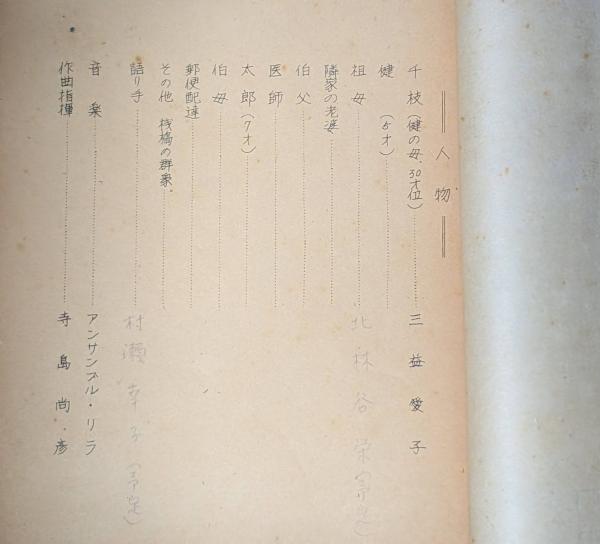 人物
千枝(健の母、30才位)……三益愛子
健(5才)
祖母……北林谷栄(予定)
隣家の老婆
伯父
医師
太郎(7才)
伯母
郵便配達
その他 桟橋の群衆.
語り手……村瀬幸子(予定)
音楽……アンサンブル・リラ
作曲指揮……寺島尚彦